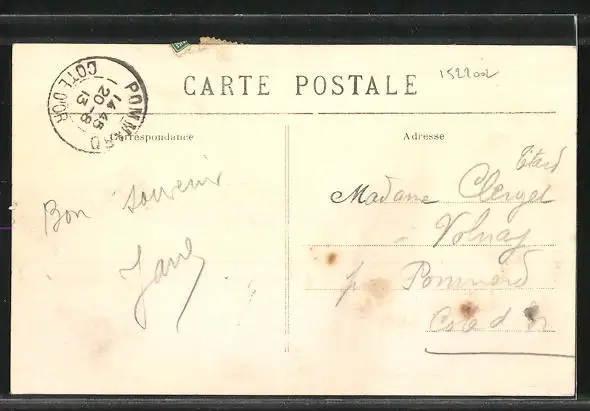 CARTE POSTALE
1522002
POMMARD
14 45
20-8
13
COTE D'OR
Correspondance
Adresse
Bon souvenir
Jane
Madame Clerget
Volnay
Pommard
Cote d'Or